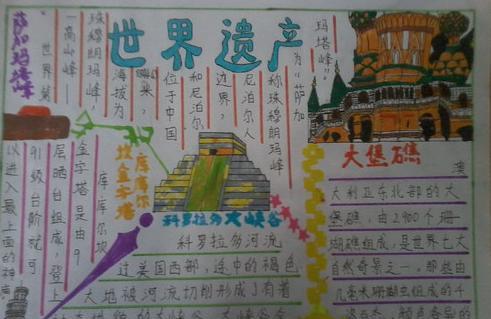 世界遗产
萨加玛塔峰
“世界第
一高山峰——
珠穆朗玛峰，
海拔为
位于中国
和尼泊尔
边界，
尼泊尔人
称珠穆朗玛峰
为“萨加
玛塔峰”。
库库尔
坎金字塔
库库尔坎
金字塔是由9
层晒台组成，登上
91级台阶就可
以进入最上面的神庙
科罗拉多大峡谷
科罗拉多河流
过美国西部，途中的褐色
大地被河流切削形成了有着
大堡礁
澳
大利亚东北部的大
堡礁，由2900个珊
瑚礁组成，是世界七大
自然奇景之一，那些由
几毫米珊瑚虫组成的千
姿百态、颜色奇异的